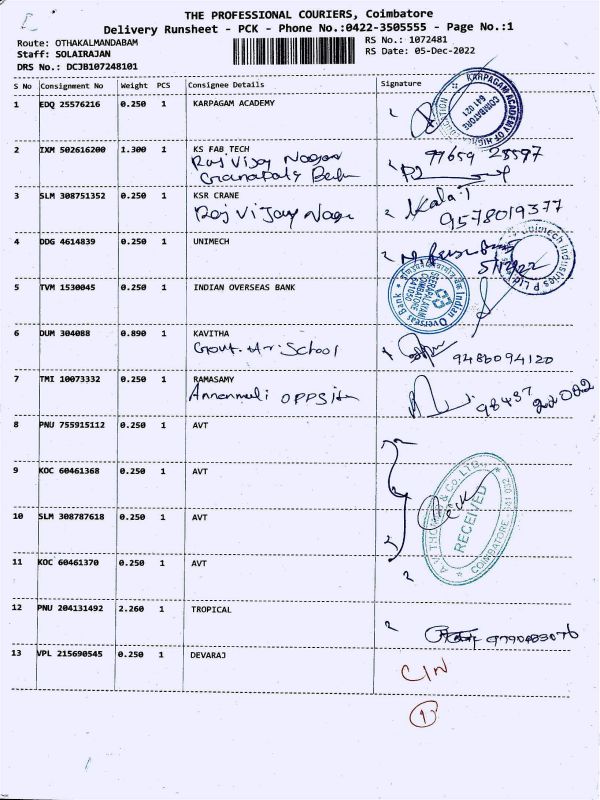 THE PROFESSIONAL COURIERS, Coimbatore
Delivery Runsheet - PCK - Phone No.:0422-3505555 - Page No.:1
Route: OTHAKALMANDABAM
RS No.: 1072481
Staff: SOLAIRAJAN
RS Date: 05-Dec-2022
DRS No.: DCJB107248101
S No Consignment No Weight PCS Consignee Details Signature
1 EDQ 25576216 0.250 1 KARPAGAM ACADEMY
KARPAGAM ACADEMY OF HIGHER EDUCATION
COIMBATORE
641 021
2 IXM 502616200 1.300 1 KS FAB TECH
Raj Vijay Nagar
77659 28597
3 SLM 308751352 0.250 1 KSR CRANE
Raj Vijay Nagar
Kala T
9578019377
4 DDG 4614839 0.250 1 UNIMECH
5/12/22
Unimech Industries P Ltd
5 TVM 1530045 0.250 1 INDIAN OVERSEAS BANK
Indian Overseas Bank
SEERAPALAYAM
COIMBATORE
641050
6 DUM 304088 0.890 1 KAVITHA
Govt. Hr. School
9486094120
7 TMI 10073332 0.250 1 RAMASAMY
Annamali OPPSite
98437 22002
8 PNU 755915112 0.250 1 AVT
9 KOC 60461368 0.250 1 AVT
A.V. THOMAS & Co. LTD.
RECEIVED
COIMBATORE - 641 032
10 SLM 308787618 0.250 1 AVT
11 KOC 60461370 0.250 1 AVT
12 PNU 204131492 2.260 1 TROPICAL
9790403076
13 VPL 215690545 0.250 1 DEVARAJ
CIN
1